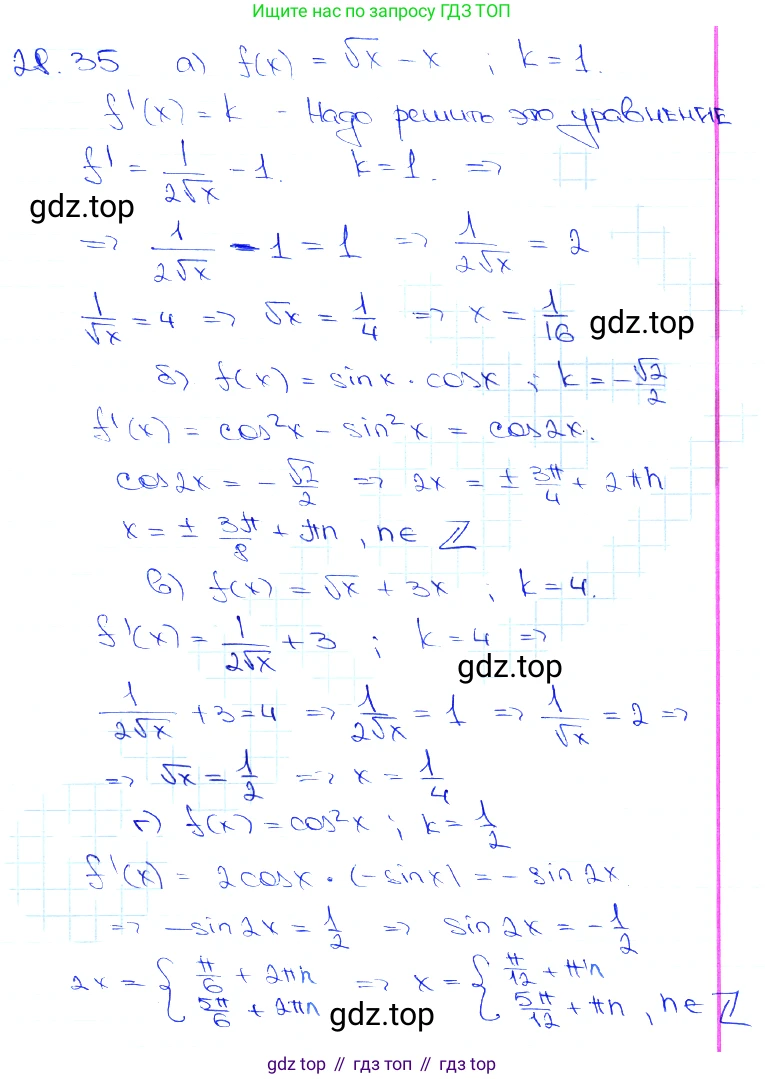 Ищите нас по запросу ГДЗ ТОП
28.35 а) f(x) = √x - x ; k = 1.
f'(x) = k - Надо решить это уравнение
f' = 1/(2√x) - 1. k = 1. =>
gdz.top
=> 1/(2√x) - 1 = 1 => 1/(2√x) = 2
1/√x = 4 => √x = 1/4 => x = 1/16 gdz.top
б) f(x) = sinx · cosx ; k = -√2/2
f'(x) = cos²x - sin²x = cos2x.
cos2x = -√2/2 => 2x = ± 3π/4 + 2πn
x = ± 3π/8 + πn , n∈ ℤ
в) f(x) = √x + 3x ; k = 4.
f'(x) = 1/(2√x) + 3 ; k = 4 =>
gdz.top
1/(2√x) + 3 = 4 => 1/(2√x) = 1 => 1/√x = 2 =>
=> √x = 1/2 => x = 1/4
г) f(x) = cos²x ; k = 1/2
f'(x) = 2cosx · (-sinx) = -sin2x
=> -sin2x = 1/2 => sin2x = -1/2
2x = { π/6 + 2πn ; 5π/6 + 2πn => x = { π/12 + πn ; 5π/12 + πn , n∈ ℤ
gdz.top
gdz top // гдз топ // gdz top